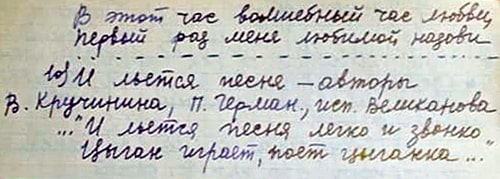 В этот час волшебный час любви,
первый раз меня любимой назови
10) И льется песня – авторы
В. Кручинина, П. Герман., исп. Великанова
..."И льется песня легко и звонко
Цыган играет, поет цыганка..."